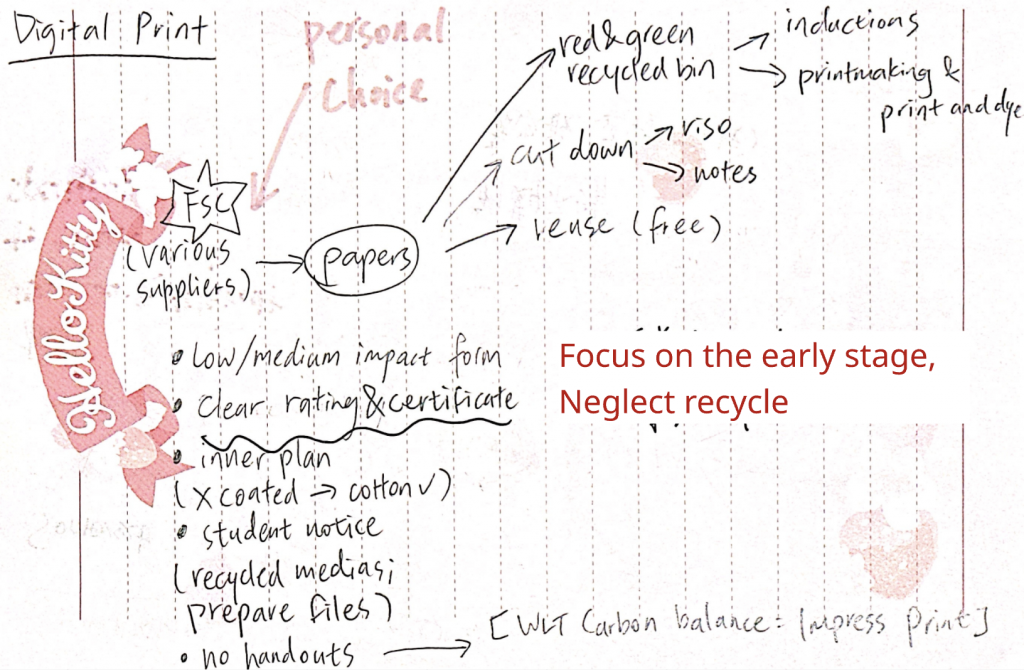 Digital Print
personal
choice
red&green
recycled bin
inductions
printmaking &
print and dye
cut down
riso
notes
reuse (free)
FSC
(various
suppliers)
papers
Hello Kitty
• low/medium impact form
• clear rating & certificate
• inner plan
(X coated → cotton ✓)
• student notice
(recycled medias;
prepare files)
• no handouts → [WLT Carbon balance: Impress Print]
Focus on the early stage,
Neglect recycle